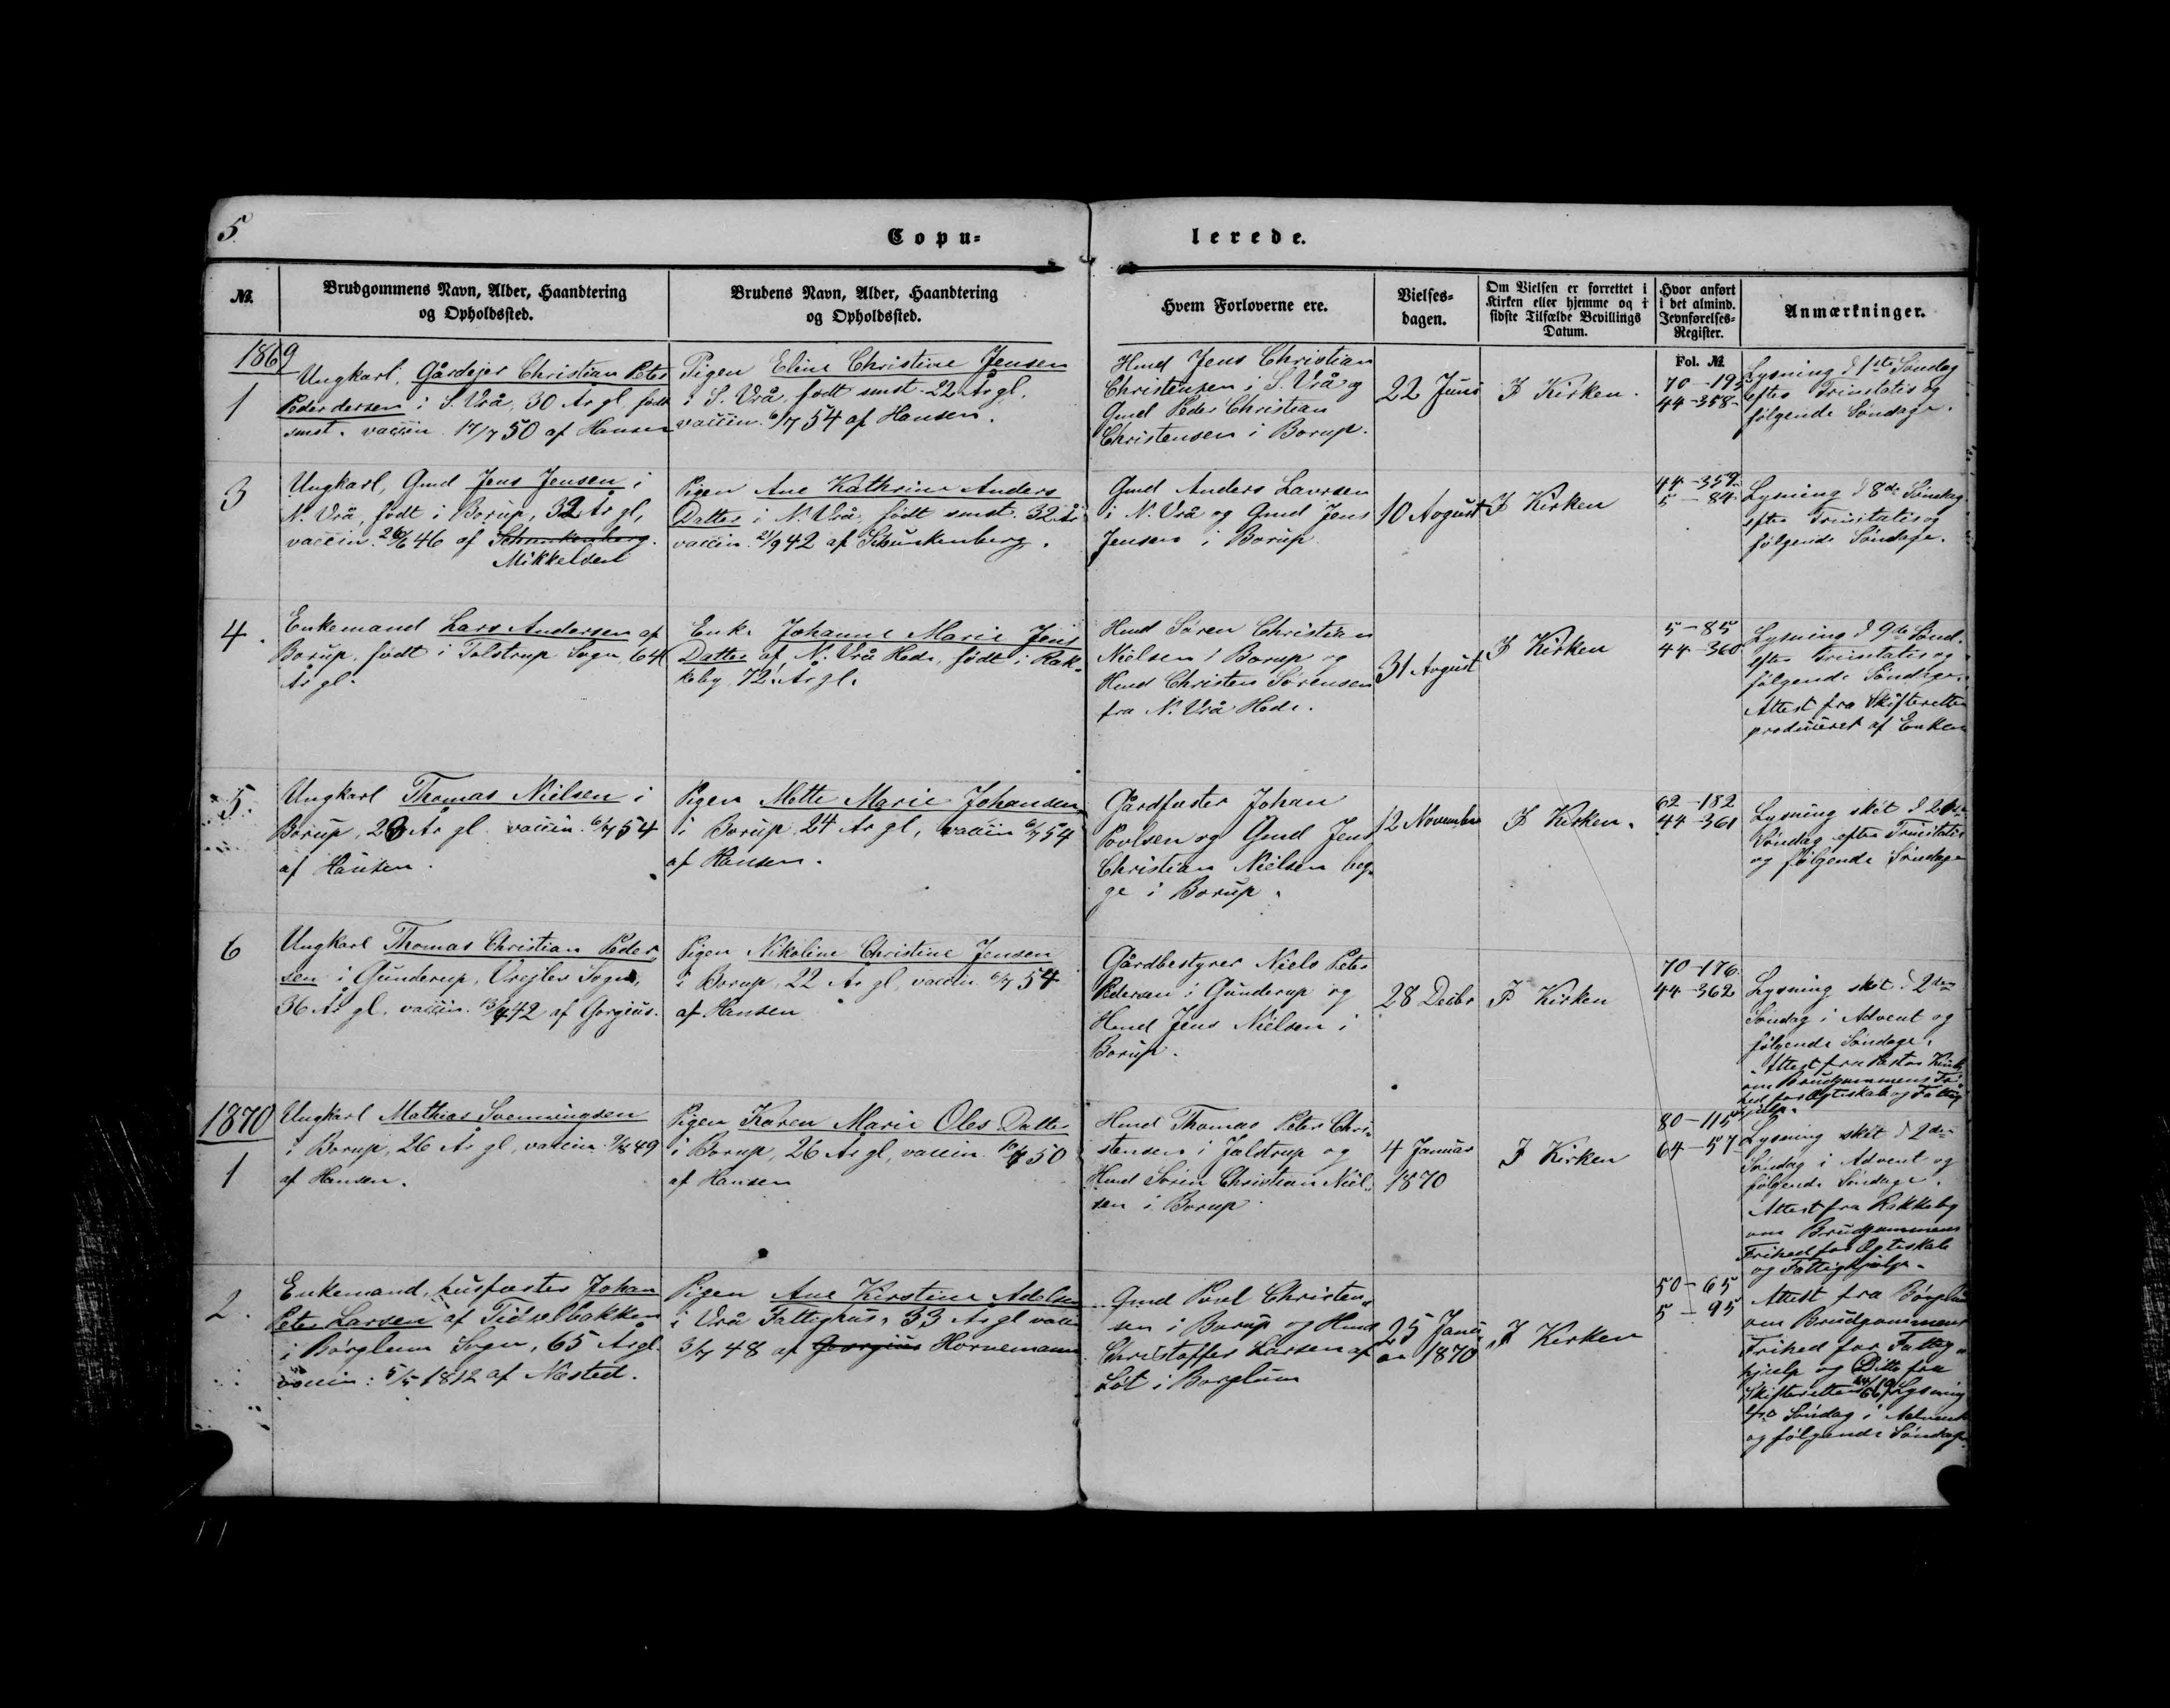 5.
Copu=
lerede.
№.
Brudgommens Navn, Alder, Haandtering
og Opholdssted.
Brudens Navn, Alder, Haandtering
og Opholdssted.
Hvem Forloverne ere.
Vielses=
dagen.
Om Vielsen er forrettet i
Kirken eller hjemme og i
sidste Tilfælde Bevillings
Datum.
Hvor anført
i det almind.
Jevnførelses=
Register.
Anmærkninger.
Fol. №
1869
1
Ungkarl, Gårdejer Christian Peter
Pedersen i S. Vrå, 30 År gl, født
smst. vaccin. 17/7 50 af Hansen
Pigen Eline Christine Jensen
i S. Vrå, født smst. 22 År gl.
vaccin. 6/7 54 af Hansen.
Hmd Jens Christian
Christensen i S. Vrå og
Gmd Peder Christian
Christensen i Borup.
22 Juni
I Kirken.
70-195
44-358
Lysning d 1ste Søndag
efter Trinitatis og
følgende Søndage.
3
Ungkarl, Gmd Jens Jensen i
N. Vrå, født i Borup, 32 År gl,
vaccin. 26/6 46 af Schunkenberg.
Mikkelsen
Pigen Ane Kathrine Anders
Datter i N. Vrå, født smst. 32 År
vaccin. 21/9 42 af Schunkenberg.
Gmd Anders Lavrsen
i N. Vrå og Gmd Jens
Jensen i Borup
10 August
I Kirken
44-359
5-84
Lysning d 8de Søndag
efter Trinitatis og
følgende Søndage.
4.
Enkemand Lars Andersen af
Borup, født i Tolstrup Sogn, 64
År gl.
Enke Johanne Marie Jens
Datter af N. Vrå Hede, født i Rak=
keby 72 År gl.
Hmd Søren Christian
Nielsen i Borup og
Hmd Christen Sørensen
fra N. Vrå Hede.
31 August
I Kirken
5-85
44-360
Lysning d 9de Sønd.
efter Trinitatis og
følgende Søndage.
Attest fra Skifteretten
produceret af Enken
5.
Ungkarl Thomas Nielsen i
Borup, 28 År gl. vaccin. 6/7 54
af Hansen.
Pigen Mette Marie Johansen
i Borup 24 År gl, vaccin 6/7 54
af Hansen.
Gårdfæster Johan
Povlsen og Gmd Jens
Christian Nielsen beg=
ge i Borup.
12 November
I Kirken.
62-182
44-361
Lysning skét d
Søndag efter Trinitatis
og følgende Søndage
6
Ungkarl Thomas Christian Peder
sen i Gunderup, Vrejlev Sogn,
36 År gl. vaccin. 42 af Gorgius.
Pigen Nikoline Christine Jensen
i Borup, 22 År gl, vaccin 6/7 54
af Hansen
Gårdbestyrer Niels Peter
Pedersen i Gunderup og
Hmd Jens Nielsen i
Borup.
28 Decbr
I Kirken
70-176.
44-362
Lysning skét d 2den
Søndag i Advent og
følgende Søndage.
Attest fra Pastor
om Brudgommens Fri
hed for Ægteskab og Fattig
hjælp.
1870
1
Ungkarl Mathias Svenningsen
i Borup, 26 År gl, vaccin. 49
af Hansen.
Pigen Karen Marie Oles Datter
i Borup, 26 År gl, vaccin. 50
af Hansen
Hmd Thomas Peter Chri=
stensen i Jalstrup og
Hmd Søren Christian Niel=
sen i Borup
4 Januar
1870
I Kirken
80-115
64-57
Lysning skét d 2den
Søndag i Advent og
følgende Søndage.
Attest fra Rakkeby
om Brudgommens
Frihed for Ægteskab
og Fattighjælp.
2.
Enkemand, husfæster Johan
Peter Larsen af Tidselbakken
i Børglum Sogn, 65 År gl.
vaccin: 5/5 1812 af Næsted.
Pigen Ane Kirstine Adelsen
i Vrå Fattighus, 33 År gl vaccin
3/7 48 af Gorgius Hornemann
Gmd Povl Christen=
sen i Borup og Hmd
Christoffer Larsen af
Løt i Børglum
25 Janu
ar 1870
I Kirken
50-65
5-95
Attest fra Børglum
om Brudgommens
Frihed for Fattig=
hjælp og Ditto fra
Skifteretten Lysning
4de Søndag i Advent
og følgende Søndage.